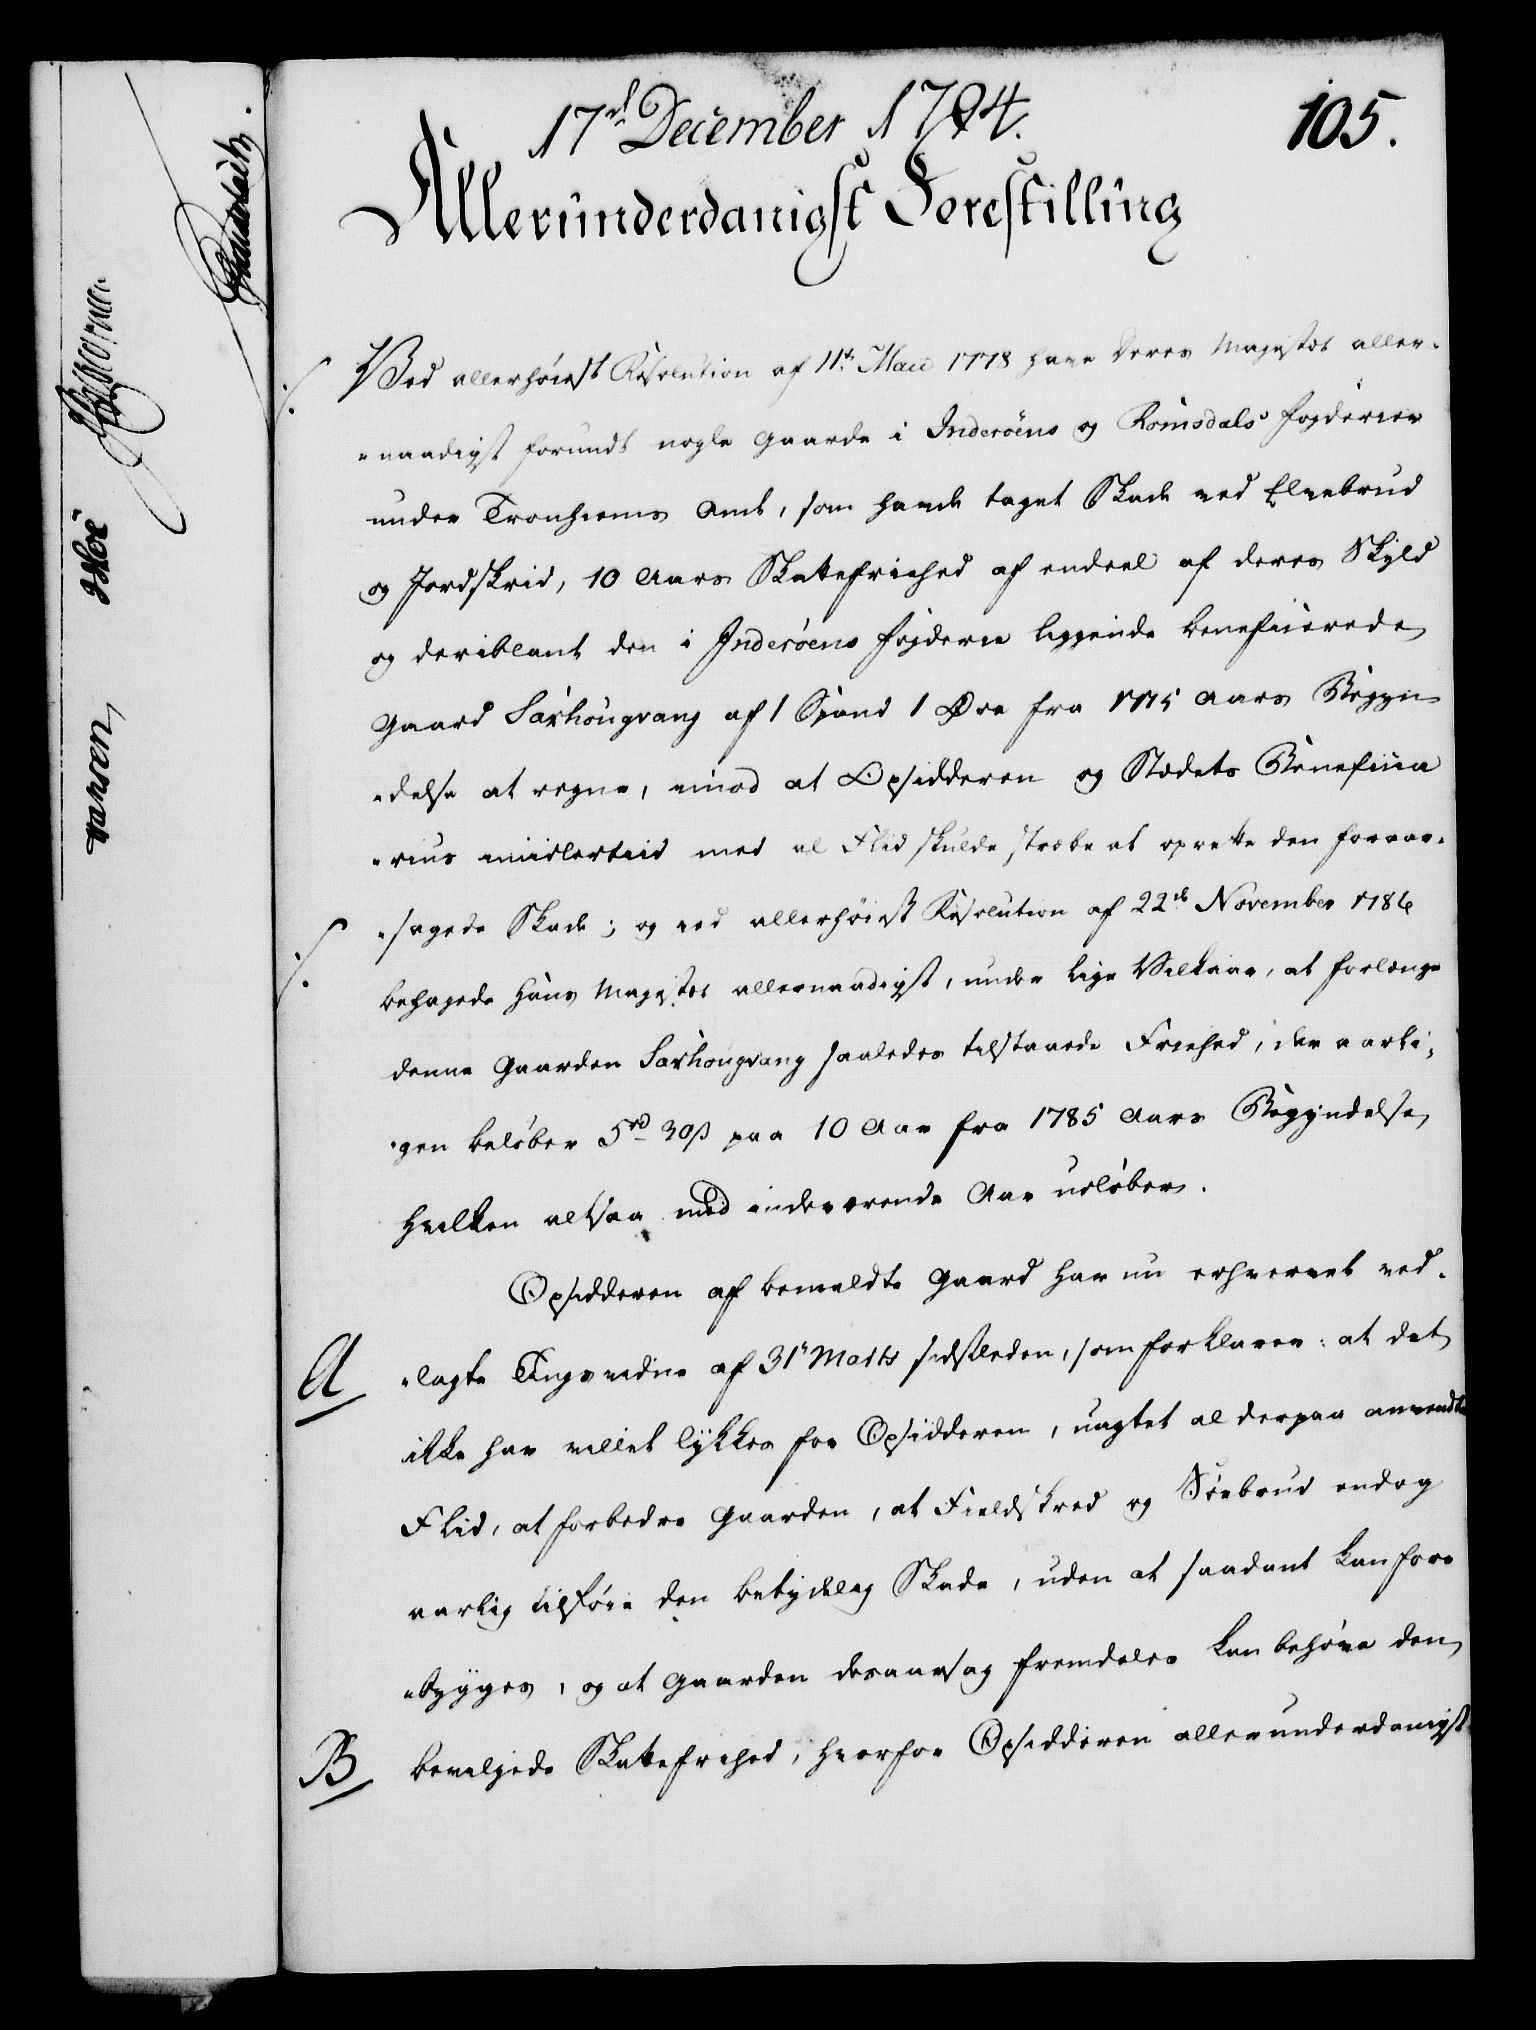 17d December 1794.
105.
Allerunderdanigst Forestilling
Ved allerhöiest Resolution af 11te Maii 1778 have Deres Majestæt aller-
"naadigst forundt nogle Gaarde i Inderöens og Romsdals Fogderier
under Tronhiems Amt, som havde taget Skade ved Elvebrud
og Jordskrid, 10 Aars Skattefriehed af endeel af deres Skyld
og deriblant den i Inderöens Fogderie liggende beneficerede
Gaard Saxhougvang af 1 Spand 1 Øre fra 1775 Aars Begyn-
"delse at regne, imod at Opsidderen og Stedets Beneficia
"rius imidlertiid med al Fliid skulde stræbe at oprette den foraar-
"sagede Skade; og ved allerhöiest Resolution af 22de November 1786
behagede Hans Majestæt allernaadigst, under lige Vilkaar, at forlænge
denne Gaarden Saxhougvang saaledes tilstaaede Friehed, der aarli-
"gen beløber 5 rd 30 ß paa 10 Aar fra 1785 Aars Begyndelse,
hvilken altsaa med indeværende Aar udløber.
Opsidderen af bemeldte Gaard har nu erhvervet ved-
A "lagte Tingsvidne af 31e Marts sidstleden, som forklarer: at det
ikke har villet lykkes for Opsidderen, uagtet al derpaa anvendte
Fliid, at forbedre Gaarden, at Fieldskred og Søebrud endog
aarlig tilføie den betydelig Skade, uden at saadant kan fore
"bygges, og at Gaarden desaarsag fremdeles kan behøve den
B bevilgede Skattefriehed, hvorfor Opsidderen allerunderdanigst